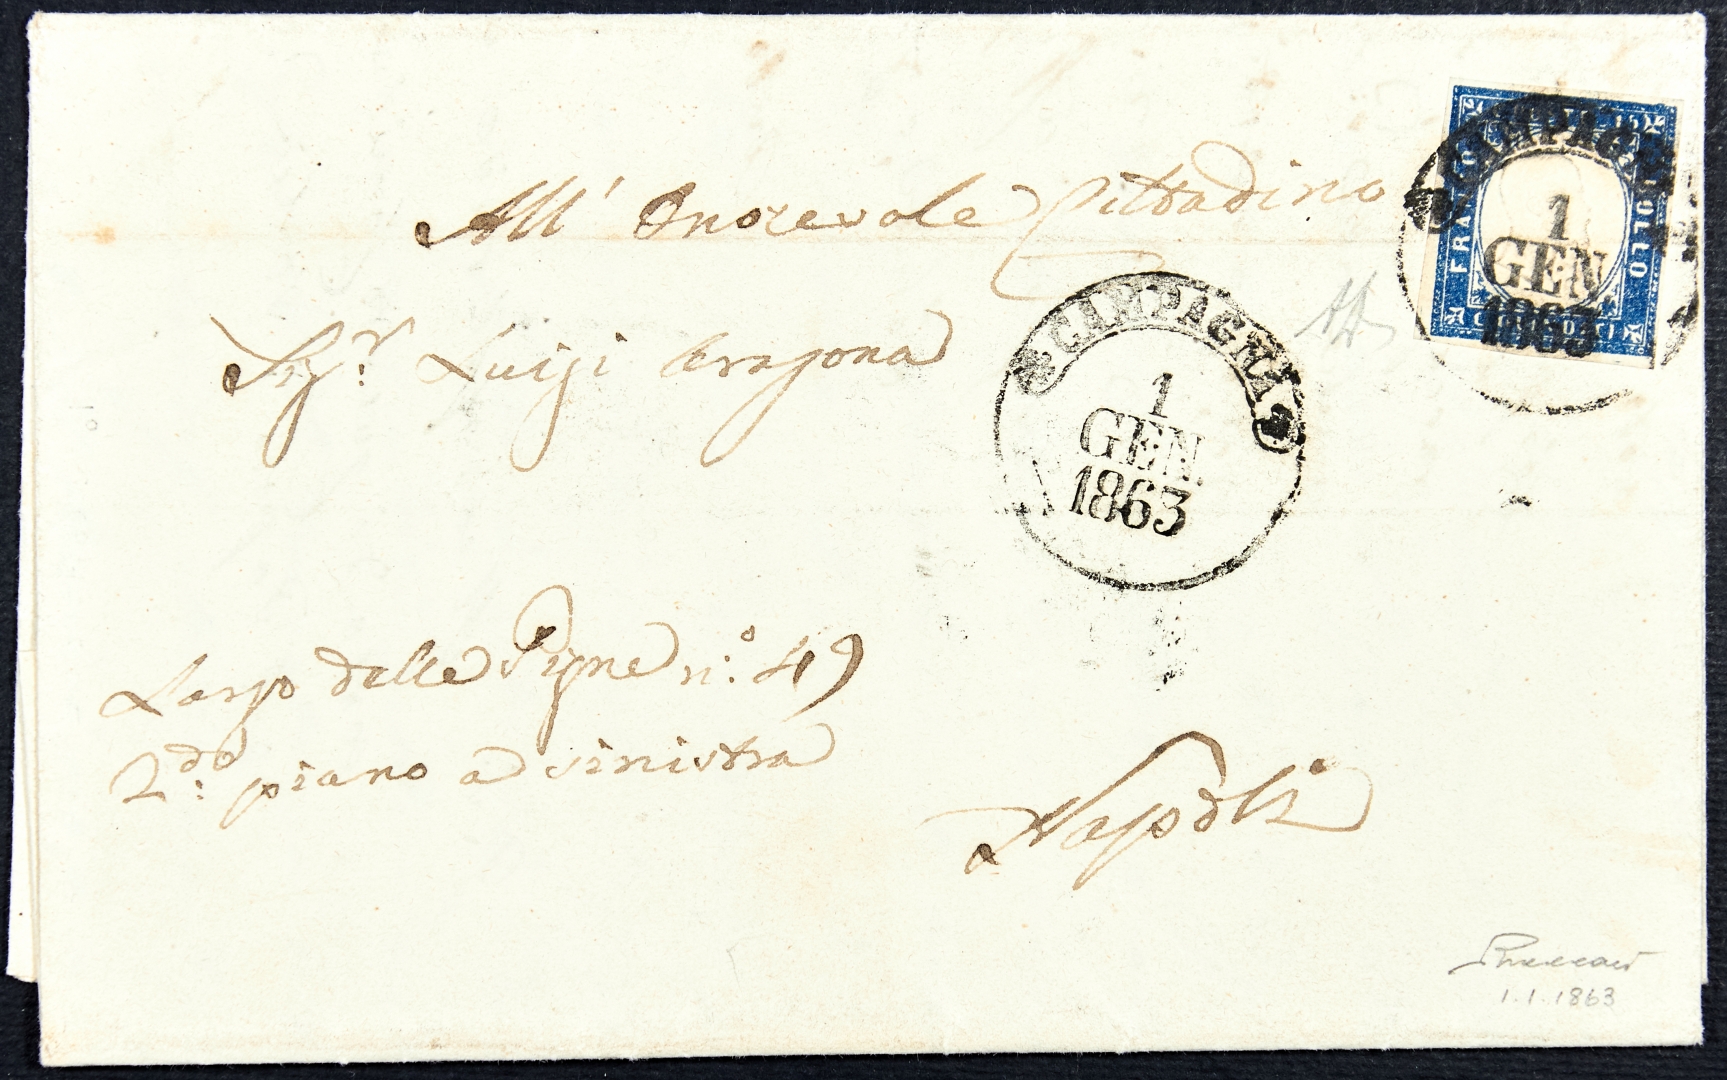 All' Onorevole Cittadino
Sig.r Luigi Aragona
Largo delle Pigne n.o 49
2.do piano a sinistra
Napoli
CAMPAGNA
1
GEN.
1863
FRANCO BOLLO
C. 15
CAMPAGNA
1
GEN
1863
1.1.1863